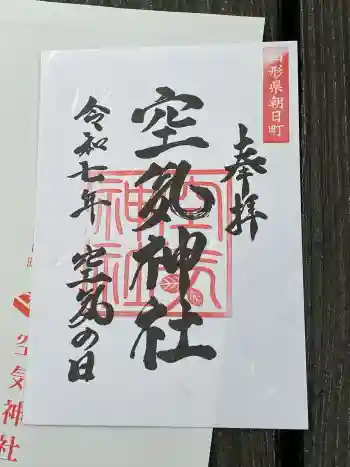 山形県朝日町
奉拝
空気神社
令和七年 空気の日
空気神社
空気神社